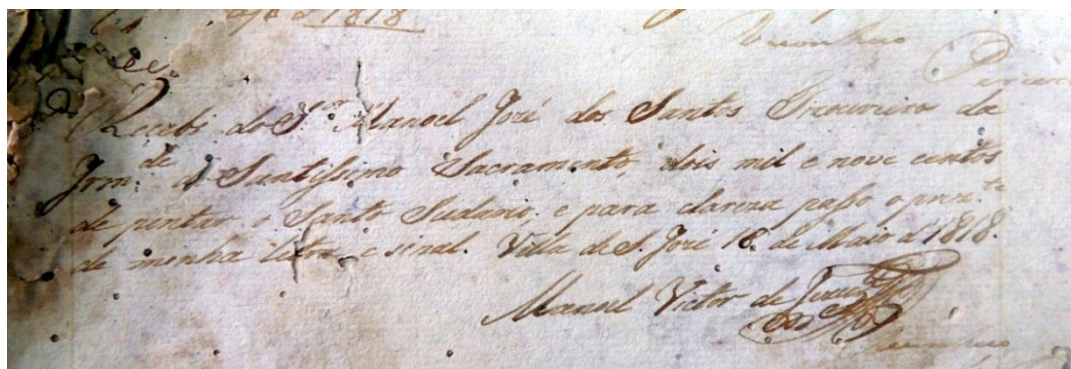 1818
Recebi do Snr. Manoel José dos Santos Thoureiro da
Irm.de do Santissimo Sacramento, dois mil e nove centos
de pintar o Santo Sudario, e para clareza paso o prez.te
de minha letra e sinal. Villa de S. José 18 de Maio d 1818.
Manoel Victor de Jesus